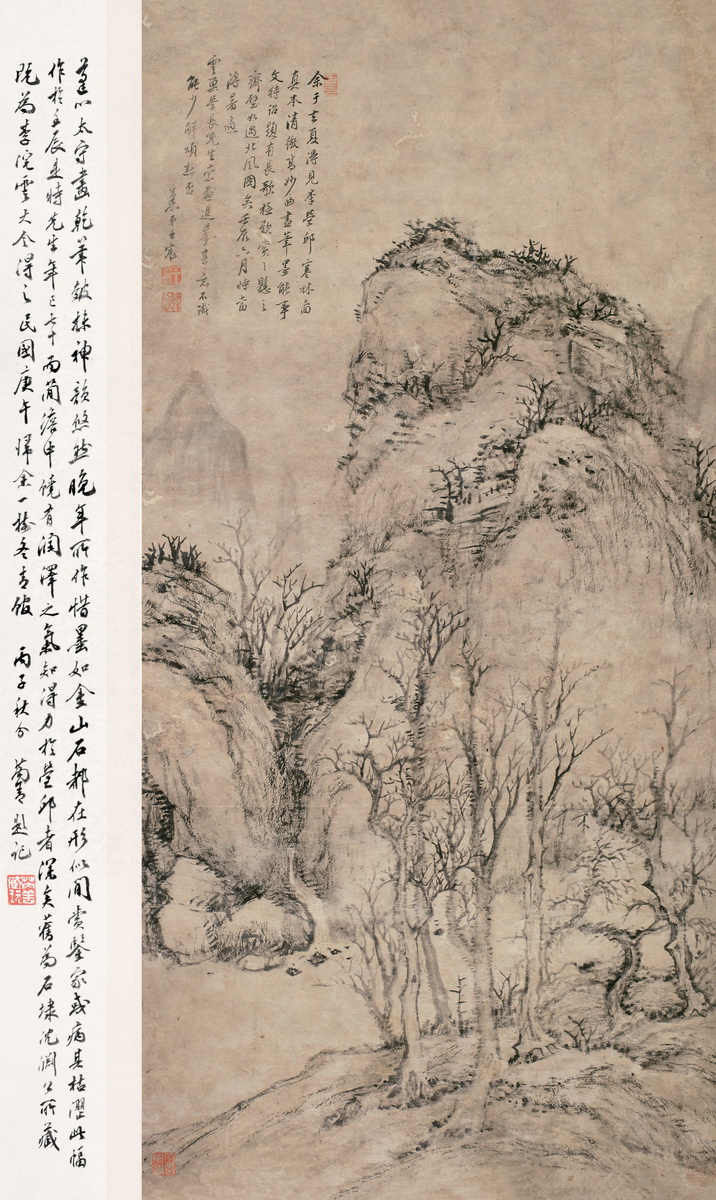 余于去夏得見李營邱寒林圖
真本清微高妙曲盡筆墨能事
文待詔題有長歌極歎賞之懸之
齋壁如過北風圖矣壬辰六月時當
溽暑適
雲
學長先生索畫進摹其意不識
能少解煩熱否
王宸
蓬心太守畫乾筆皴抹神韻悠然晚年所作惜墨如金山石都在形似間賞鑒家或病其枯澀此幅
作於壬辰是時先生年已七十而簡澹中饒有潤澤之氣知得力於營邱者深矣舊為石埭沈閬公所藏
旋為李悅雲大令得之民國庚午歸余一樹冬青館 丙子秋分 菊青題記